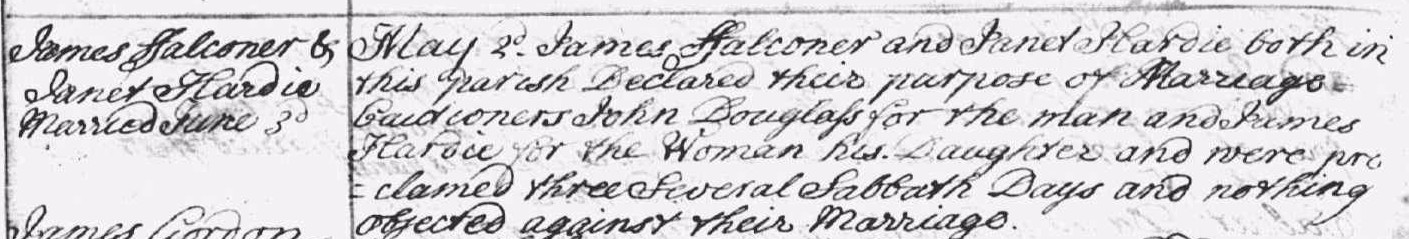 James Ffalconer &
Janet Hardie
Married June 3d
James Gordon
May 2d. James Ffalconer and Janet Hardie both in
this parish Declared their purpose of Marriage
Cautioners John Douglass for the man and James
Hardie for the Woman his Daughter and were pro
=clamed three Several Sabbath Days and nothing
objected against their Marriage.